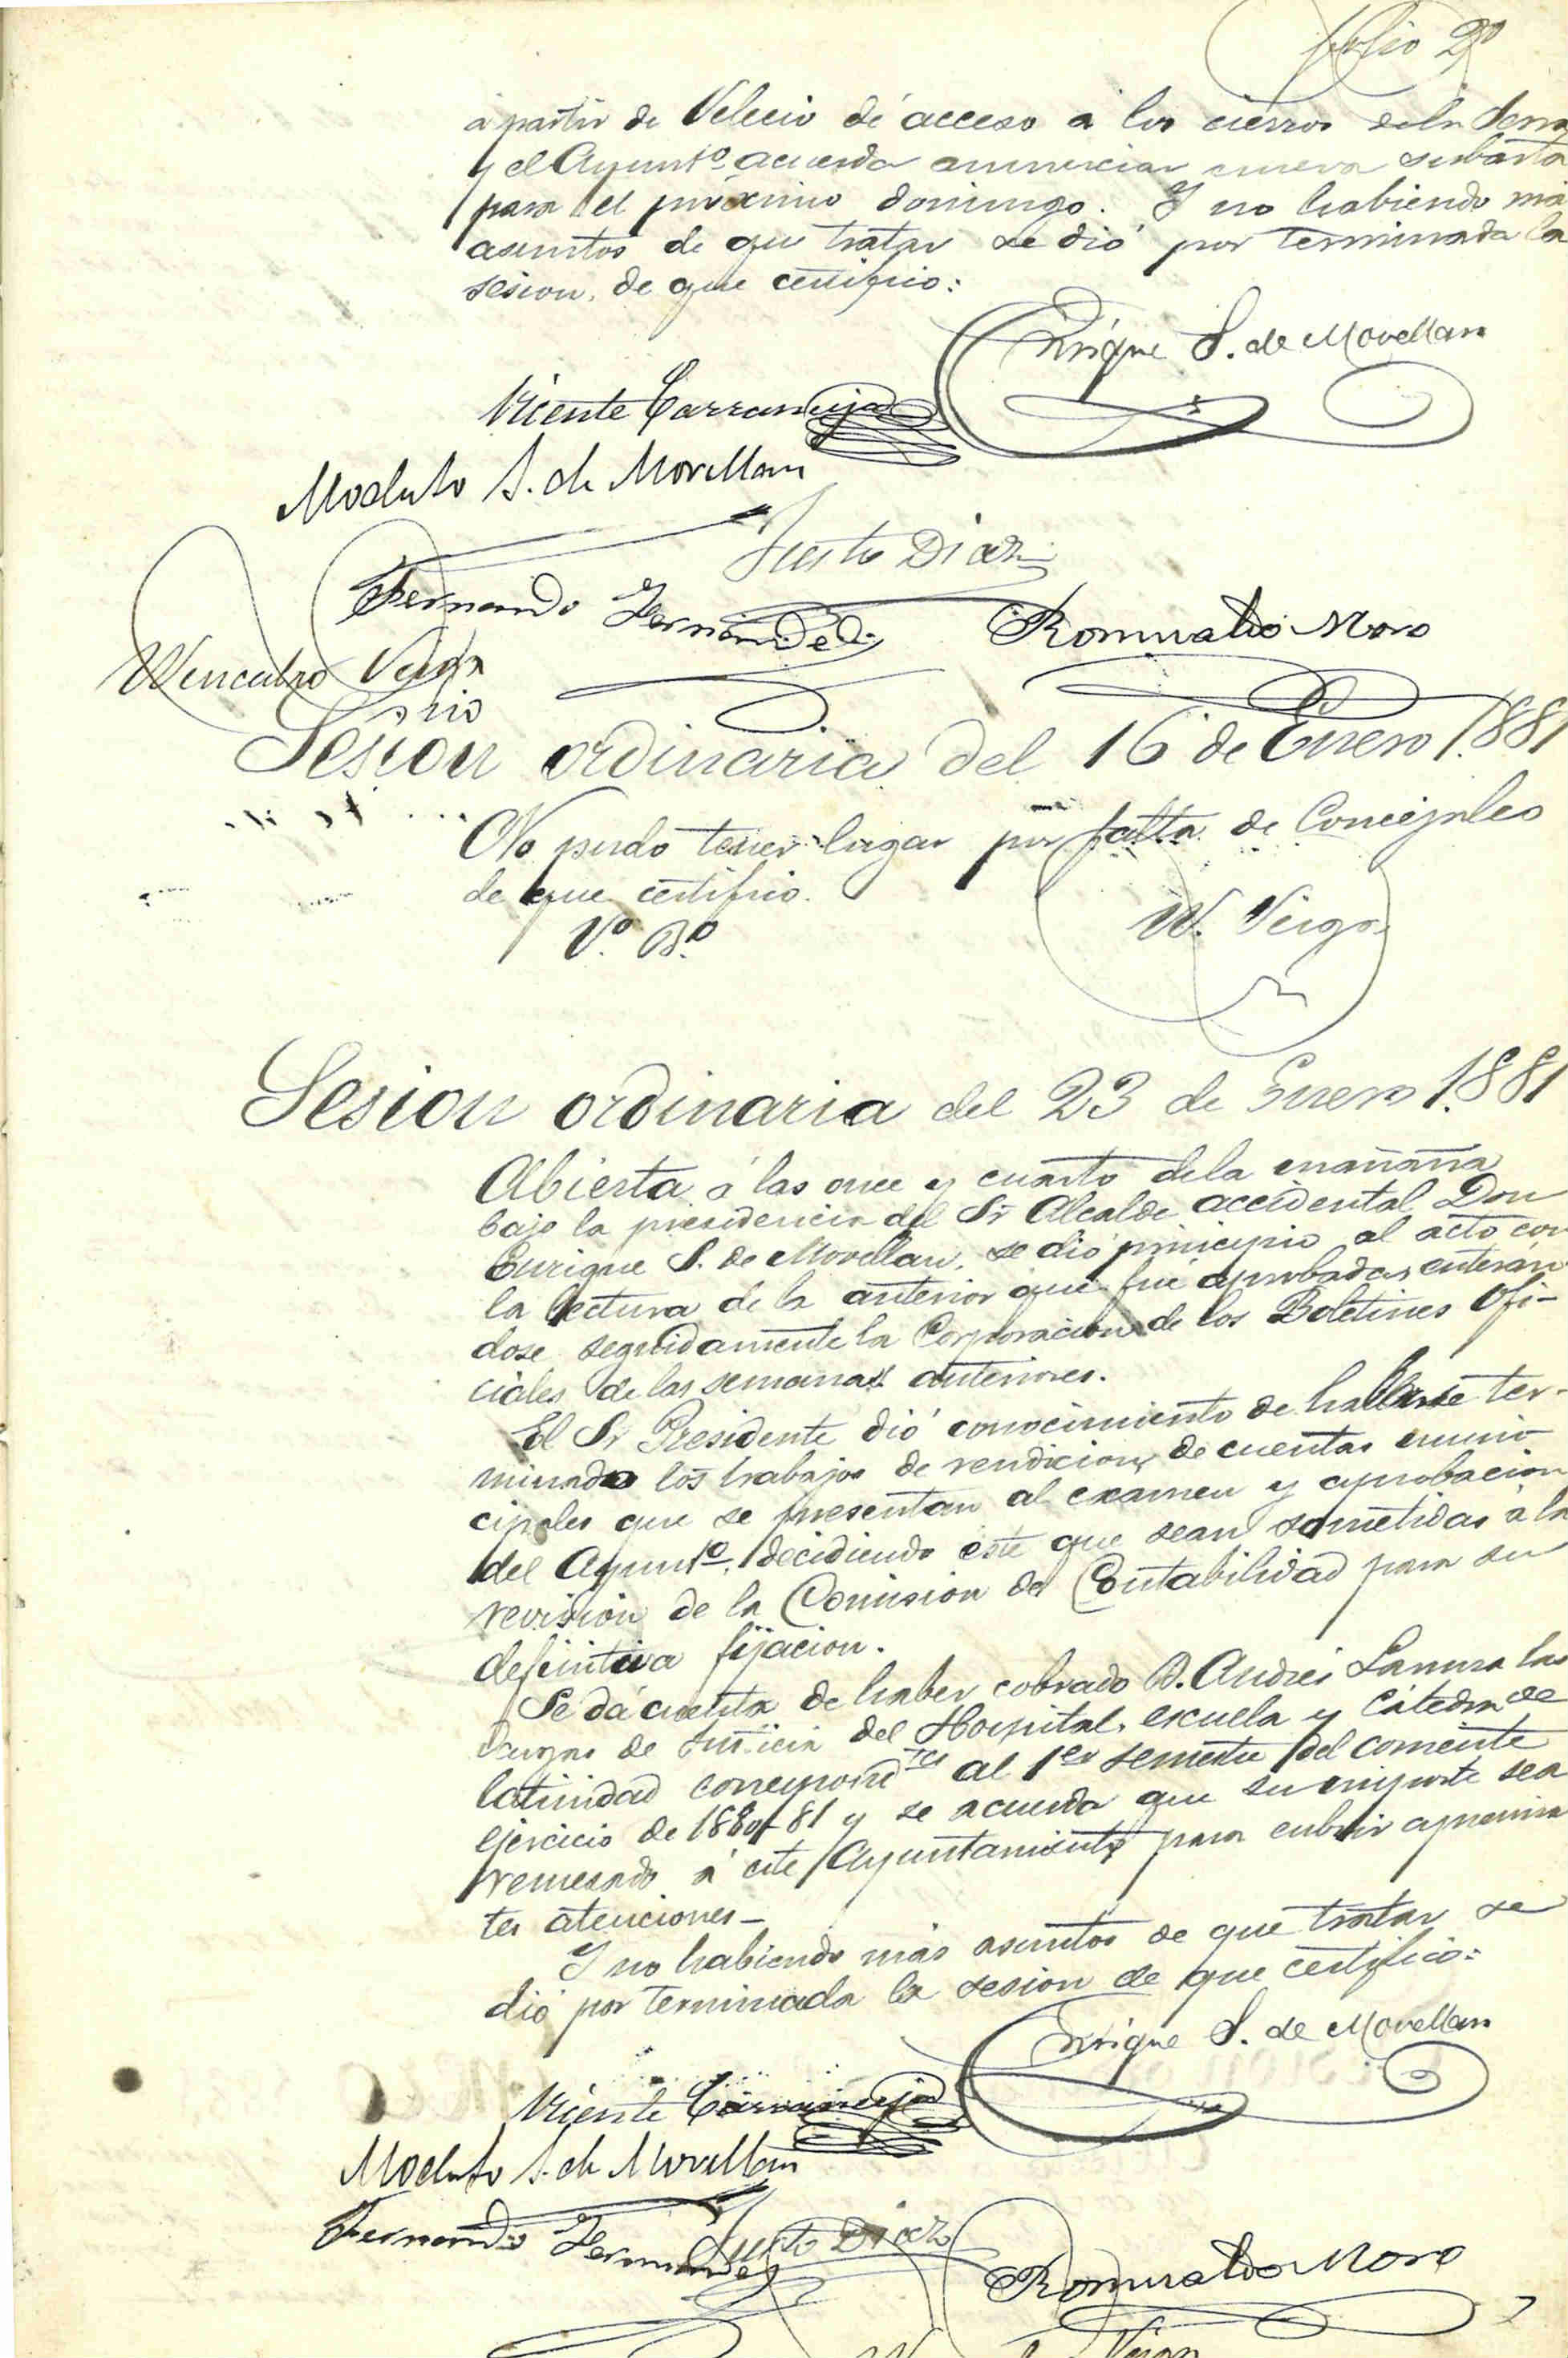 folio 2º
á partir de Velecio dé acceso á los cierros dela Serna
y el Ayuntº acuerda anunciar nueva subasta
para el próximo domingo. Y no habiendo más
asuntos de que tratar se dió por terminada la
sesion, de que certifico:
Enrique S. de Movellan
Vicente Carranceja
Modesto S. de Movellan
Justo Diaz
Fernando Fernandez
Romualdo Moro
Wenceslao Veiga
Srio
Sesion ordinaria del 16 de Enero 1.881
No pudo tener lugar por falta de Concejales
de que certifico.
Vº Bº
W. Veiga
Sesion ordinaria del 23 de Enero 1.881
Abierta á las once y cuarto dela mañana
bajo la presidencia del Sr Alcalde accidental Don
Enrique S. de Movellan, se dió principio al acto con
la lectura de la anterior que fué aprobada, enterán
dose seguidamente la Corporacion de los Boletines Ofi-
ciales de las semanas anteriores.
El Sr Presidente dió conocimiento de hallarse ter-
minado los trabajos de rendicion de cuentas muni
cipales que se presentan al examen y aprobacion
del Ayuntº, decidiendo este que sean sometidas á la
revision de la Comision de Contabilidad para su
definitiva fijacion.
Se dá cuenta de haber cobrado D. Andrés Lamera las
Cargas de Justicia del Hospital, escuela y Cátedra de
latinidad correspondtes al 1er semestre del corriente
ejercicio de 1880-81 y se acuerda que su importe sea
remesado á este Ayuntamiento para cubrir apremian
tes atenciones_
Y no habiendo más asuntos de que tratar se
dió por terminada la sesion de que certifico:
Enrique S. de Movellan
Vicente Carranceja
Modesto S. de Movellan
Fernando Fernandez
Justo Diaz
Romualdo Moro
Veiga